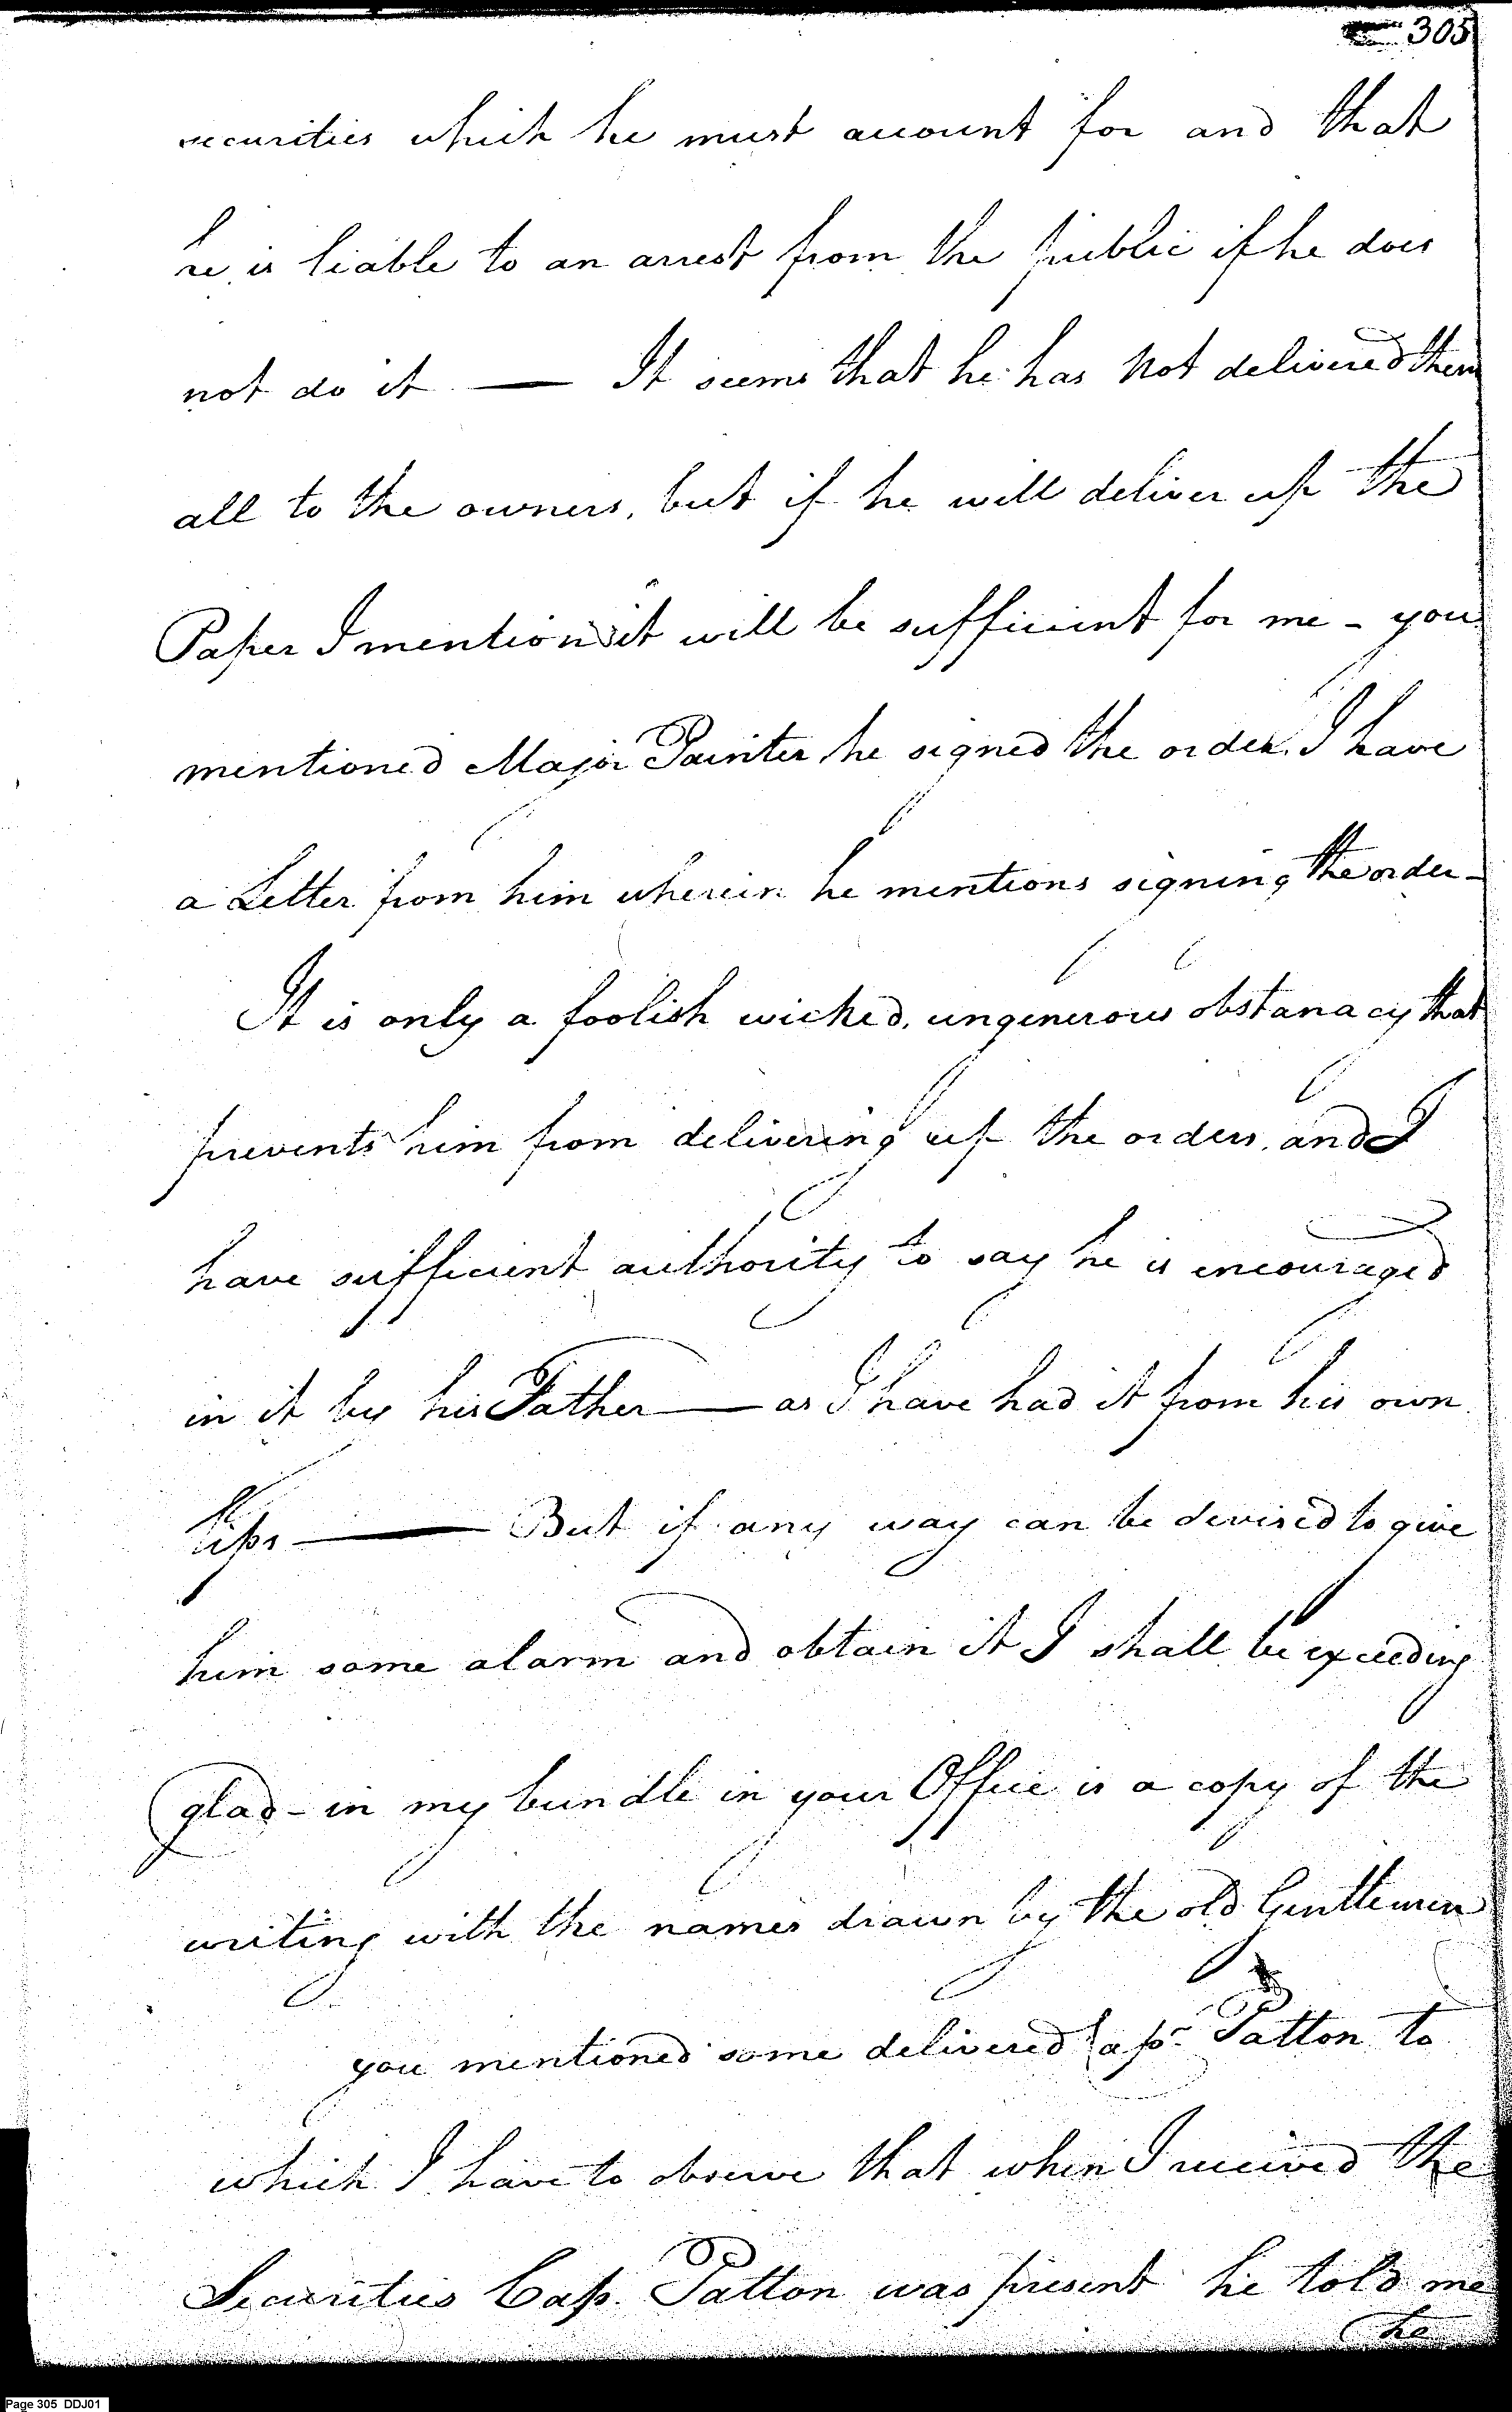 305
securities which he must account for and that
he is liable to an arrest from the public if he does
not do it — It seems that he has Not delivered them
all to the owners, but if he will deliver up the
Paper I mention it will be sufficient for me - you
mentioned Major Painter he signed the order. I have
a Letter from him wherein he mentions signing the order -
It is only a foolish wicked, ungenerous obstanacy that
prevents him from delivering up the orders, and I
have sufficient authority to say he is encouraged
in it by his Father — as I have had it from his own
lips — But if any way can be devised to give
him some alarm and obtain it I shall be exceeding
glad - in my bundle in your Office is a copy of the
writing with the names drawn by the old Gentlemen
you mentioned some delivered Capt Patton to
which I have to observe that when I received the
Securities Cap. Patton was present he told me
he
Page 305 DDJ01